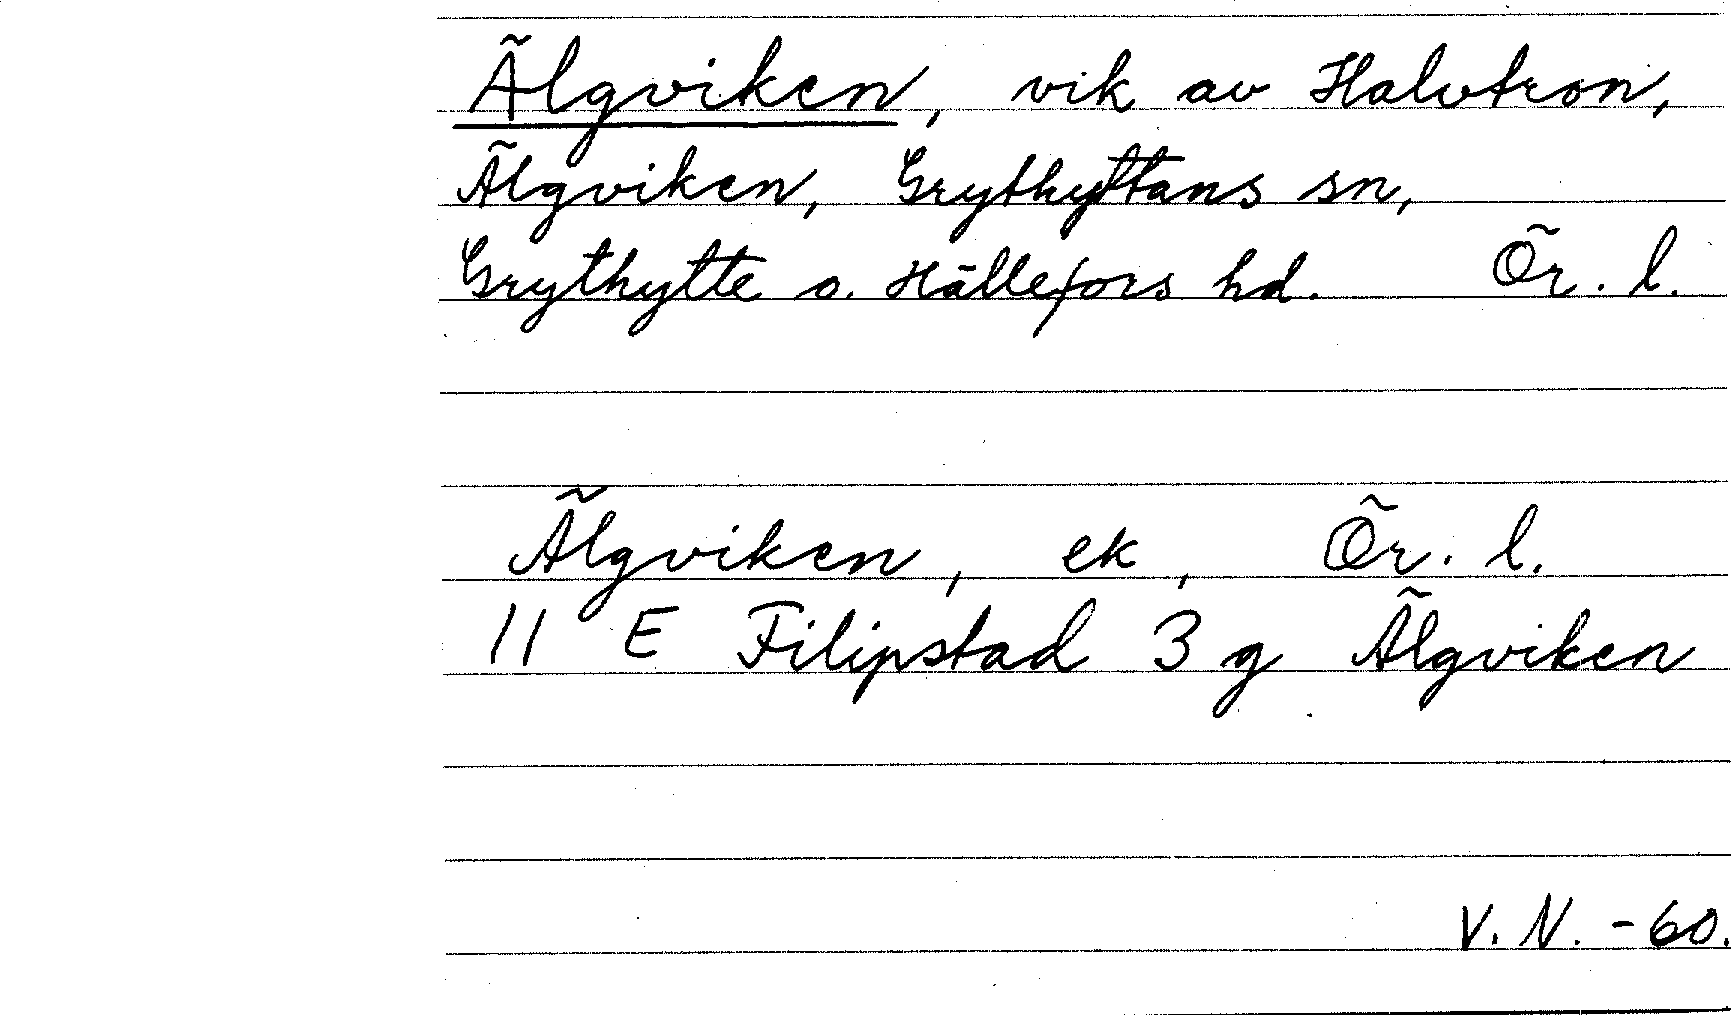 Älgviken, vik av Halvtron,
Älgviken, Grythyttans sn,
Grythytte o. Hällefors hd. Ör. l.
Älgviken, ek, Ör. l.
11 E Filipstad 3 g Älgviken
V. N. -60.